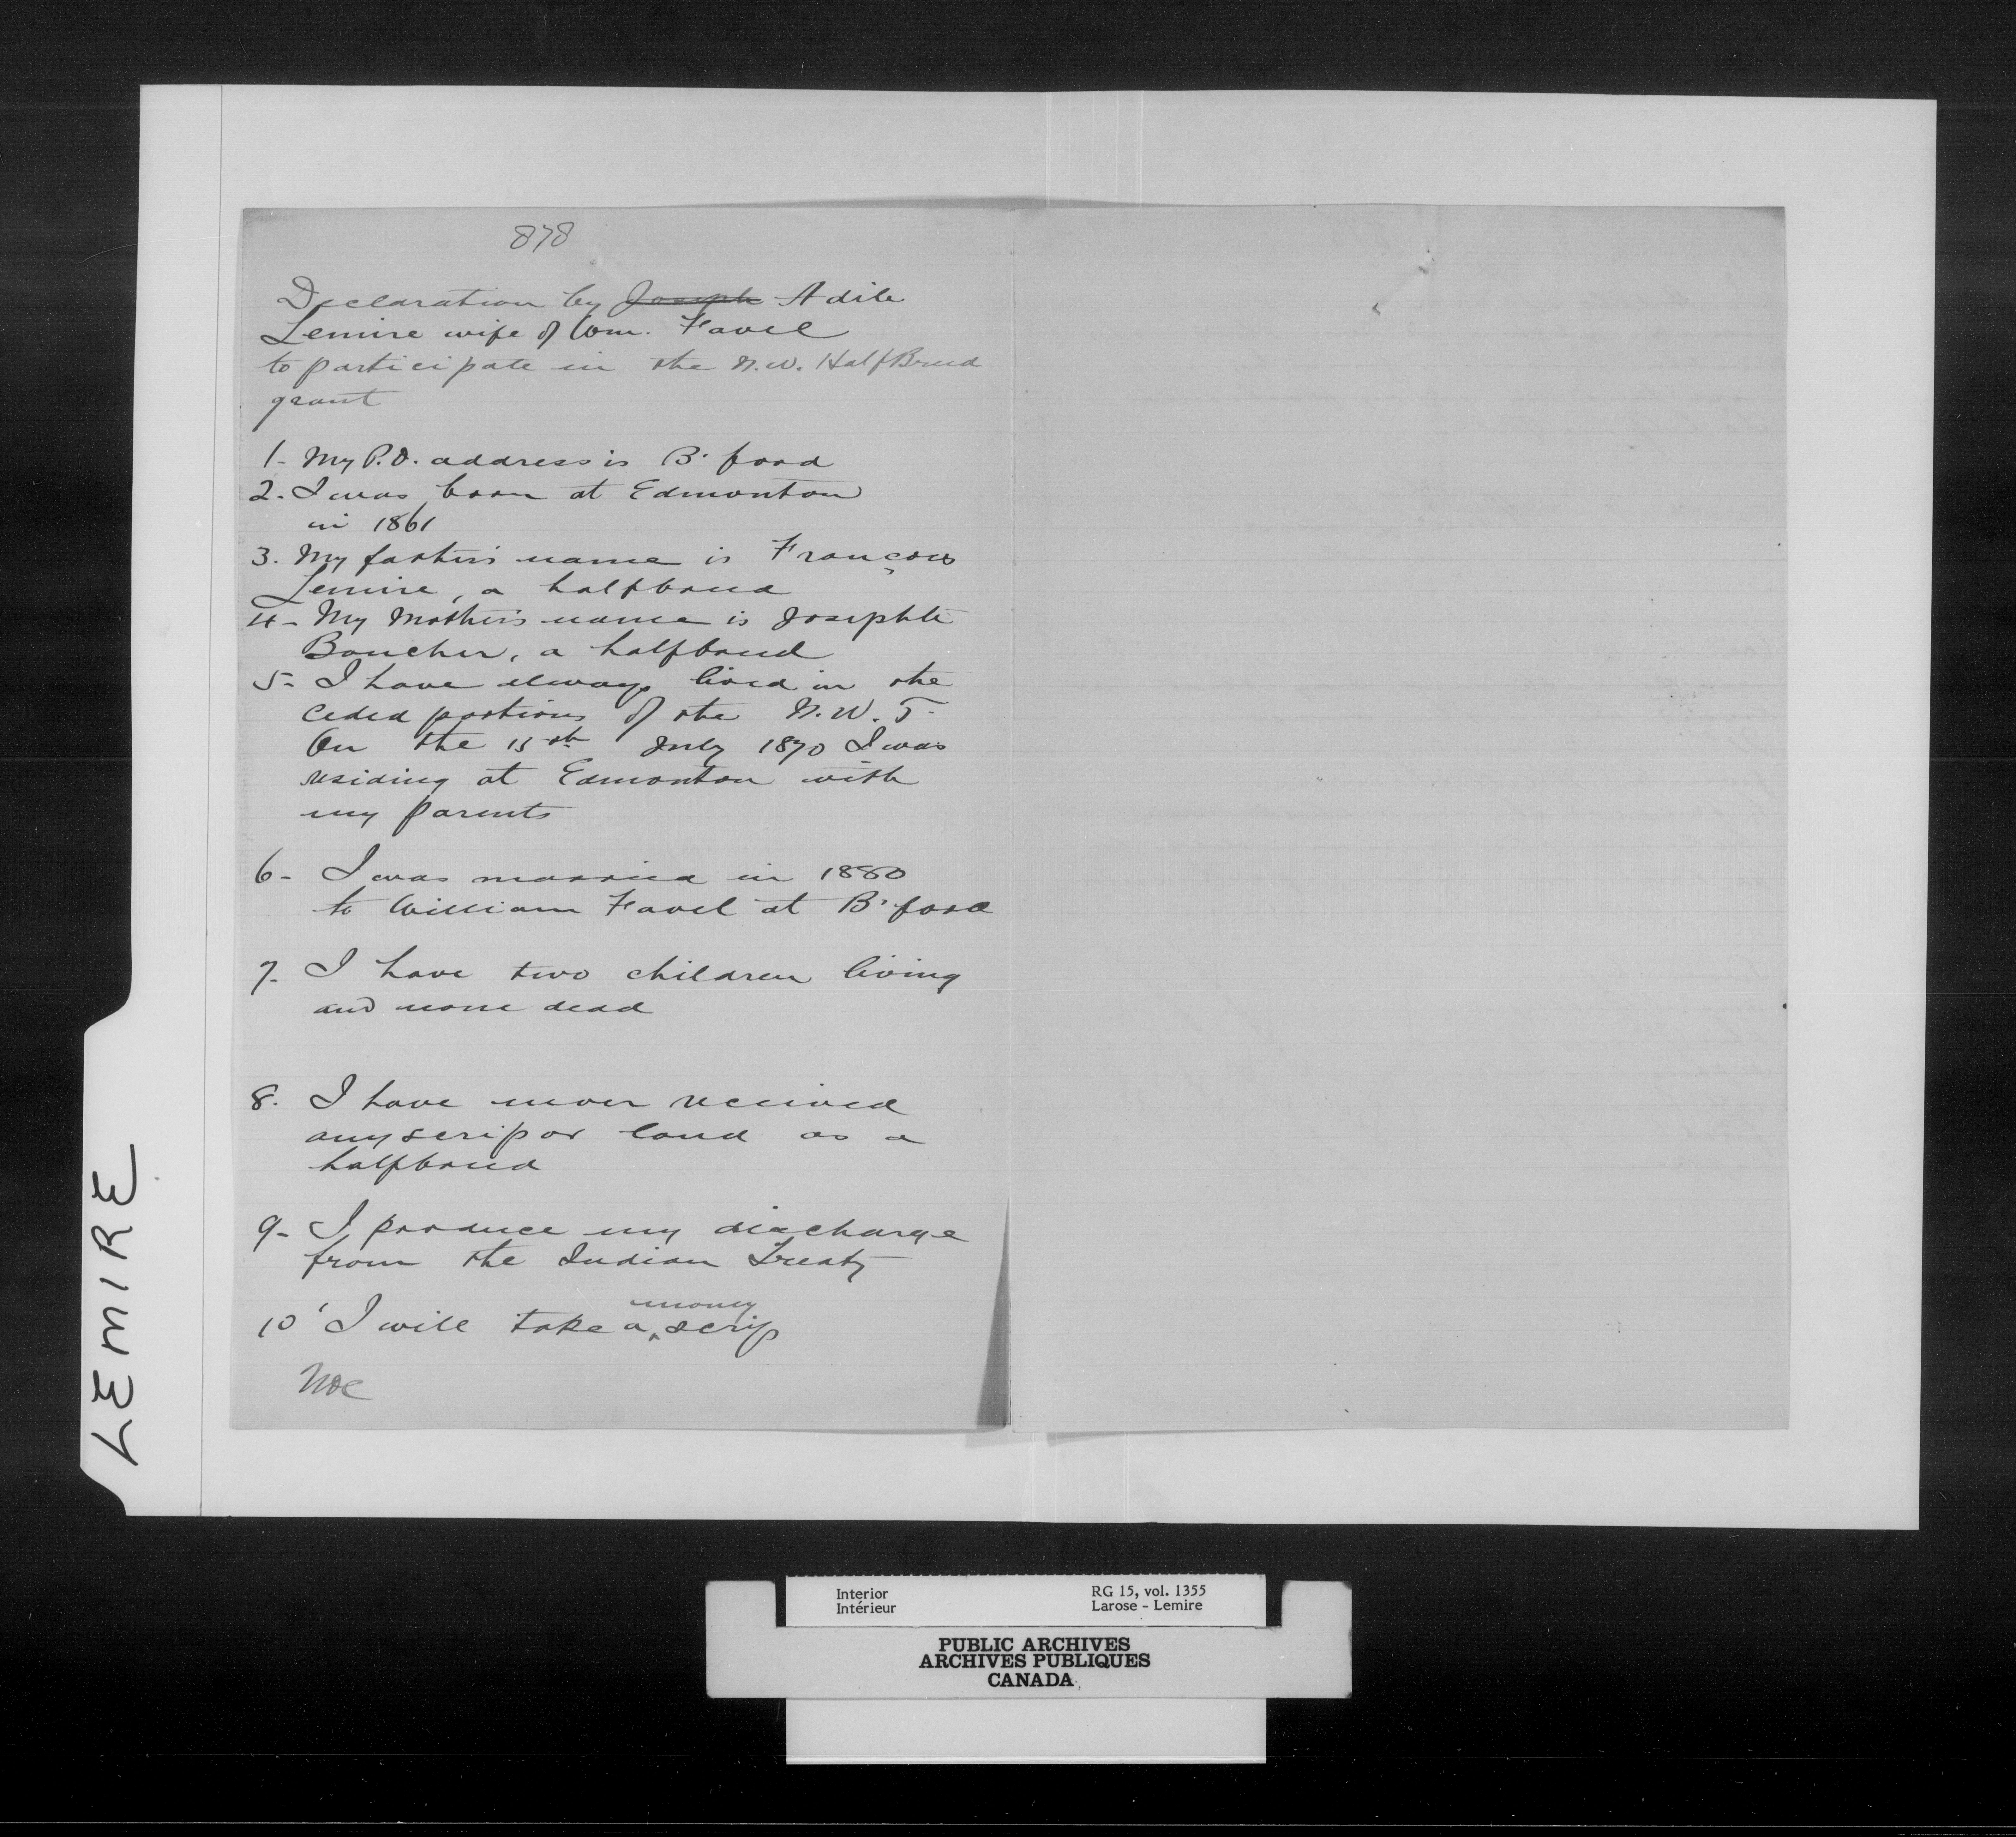 878
Declaration by Joseph Adile
Lemire wife of Wm. Favel
to participate in the N.W. HalfBreed
grant
1- My P.O. address is B'ford
2. I was born at Edmonton
in 1861
3. My father's name is François
Lemire, a halfbreed
4- My Mother's name is Josephte
Boucher, a halfbreed
5- I have always lived in the
ceded portions of the N.W.T.
On the 15th July 1870 I was
residing at Edmonton with
my parents
6- I was married in 1880
to William Favel at B'ford
7- I have two children living
and none dead
8. I have never received
any scrip or land as a
halfbreed
9- I produce my discharge
from the Indian Treaty
10' I will take a money scrip
LEMIRE
Interior RG 15, vol. 1355
Intérieur Larose - Lemire
PUBLIC ARCHIVES
ARCHIVES PUBLIQUES
CANADA